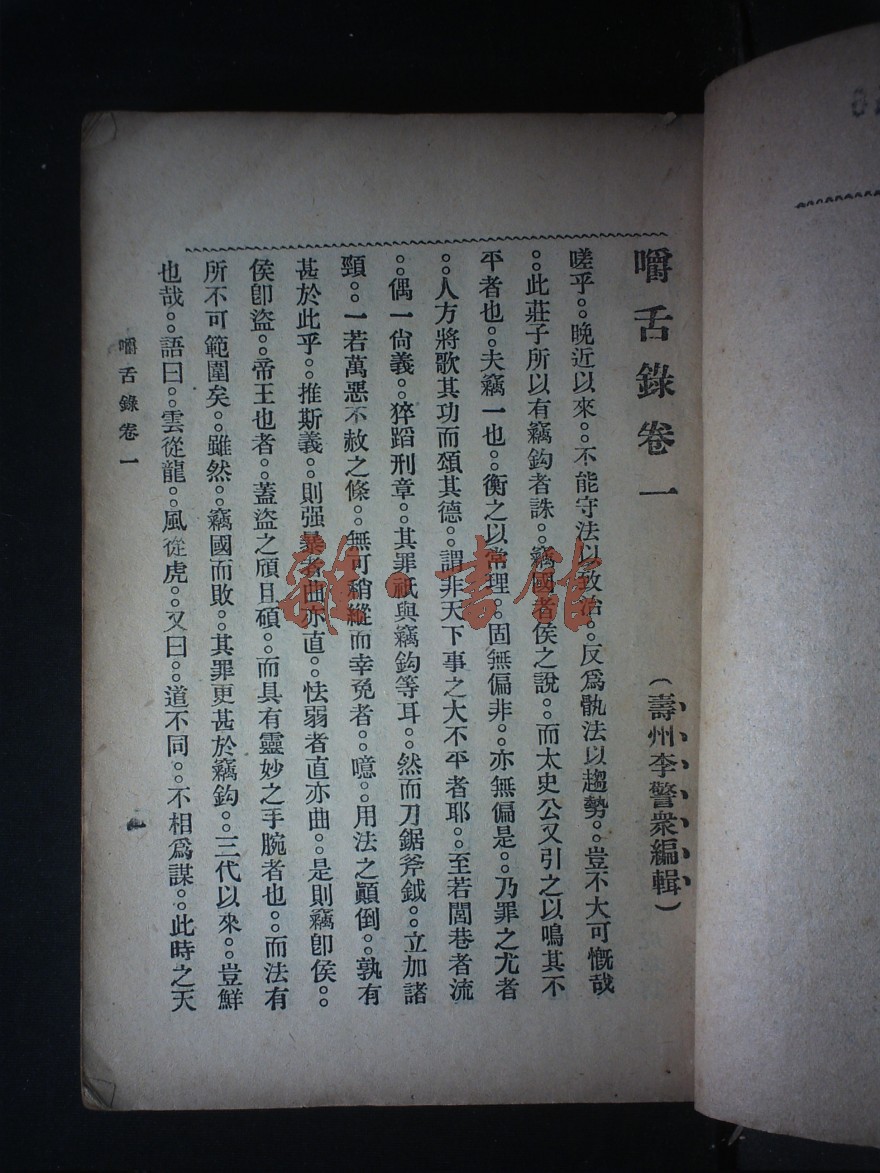 嚼舌錄卷一
(壽州李警衆編輯)
嗟乎。。晚近以來。。不能守法以致治。。反爲骫法以趨勢。。豈不大可慨哉
。。此莊子所以有竊鈎者誅。。竊國者侯之說。。而太史公又引之以鳴其不
平者也。。夫竊一也。。衡之以常理。。固無偏非。。亦無偏是。。乃罪之尤者
。。人方將歌其功而頌其德。。謂非天下事之大不平者耶。。至若閭巷者流
。。偶一尙義。。猝蹈刑章。。其罪祇與竊鈎等耳。。然而刀鋸斧鉞。。立加諸
頸。。一若萬惡不赦之條。。無可稍縱而幸免者。。噫。。用法之顚倒。。孰有
甚於此乎。。推斯義。。則强暴者曲亦直。。怯弱者直亦曲。。是則竊卽侯。。
侯卽盜。。帝王也者。。蓋盜之頑且碩。。而具有靈妙之手腕者也。。而法有
所不可範圍矣。。雖然。。竊國而敗。。其罪更甚於竊鈎。。三代以來。。豈鮮
也哉。。語曰。。雲從龍。。風從虎。。又曰。。道不同。。不相爲謀。。此時之天
嚼舌錄卷一
一
雜·書館